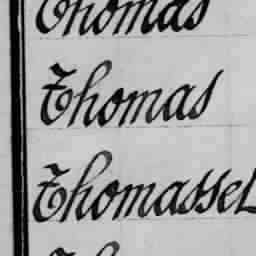 Thomas
Thomas
Thomassel